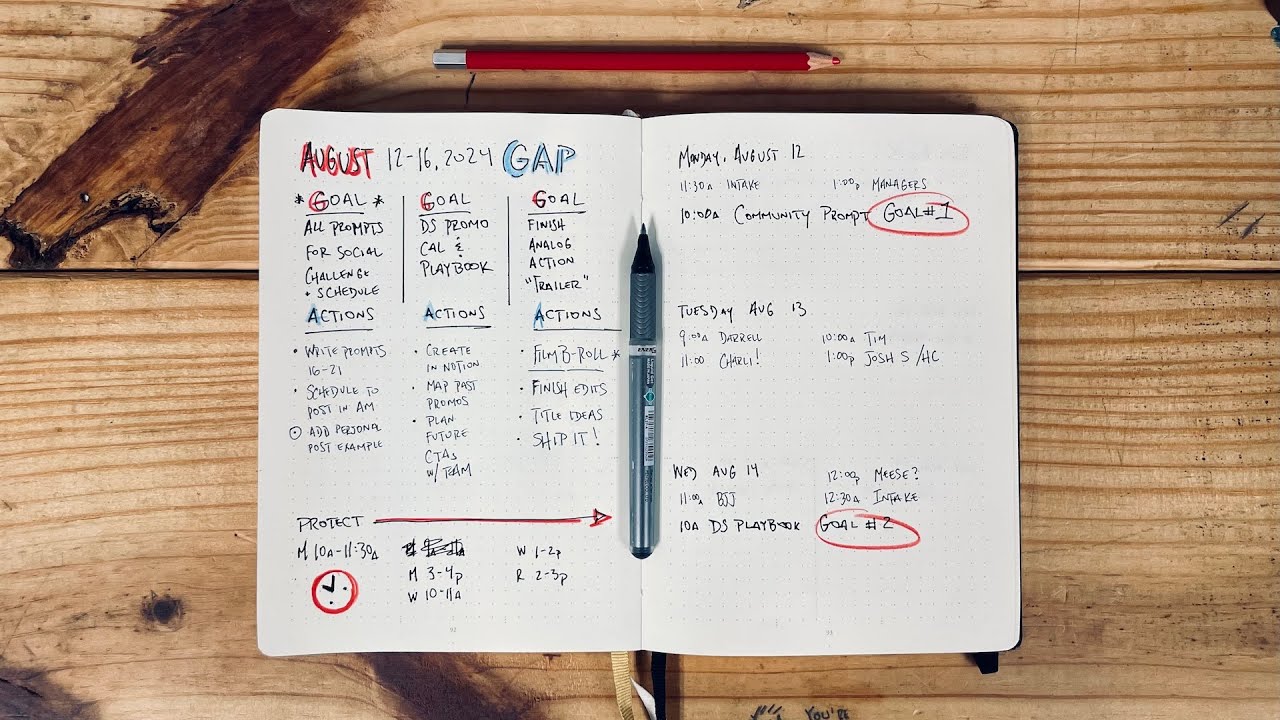 AUGUST 12-16, 2024 GAP
* GOAL *
ALL PROMPTS
FOR SOCIAL
CHALLENGE
• SCHEDULE
ACTIONS
• WRITE PROMPTS
16-21
• SCHEDULE TO
POST IN AM
ADD PERSONAL
POST EXAMPLE
GOAL
DS PROMO
CAL &
PLAYBOOK
ACTIONS
• CREATE
IN NOTION
• MAP PAST
PROMOS
• PLAN
FUTURE
CTAS
W/ TEAM
GOAL
FINISH
ANALOG
ACTION
"TRAILER"
ACTIONS
• FILM B-ROLL *
• FINISH EDITS
• TITLE IDEAS
• SHIP IT!
PROTECT
M 10A-11:30A
M 3-4P
W 10-11A
W 1-2P
R 2-3P
92
MONDAY, AUGUST 12
11:30A INTAKE 1:00P MANAGERS
10:00A COMMUNITY PROMPT GOAL #1
TUESDAY AUG 13
9:00A DARRELL 10:00A TIM
11:00 CHARLI! 1:00P JOSH S /HC
WED AUG 14 12:00P MEESE?
11:00A BJJ 12:30A INTAKE
10A DS PLAYBOOK GOAL #2
93
YOU'RE